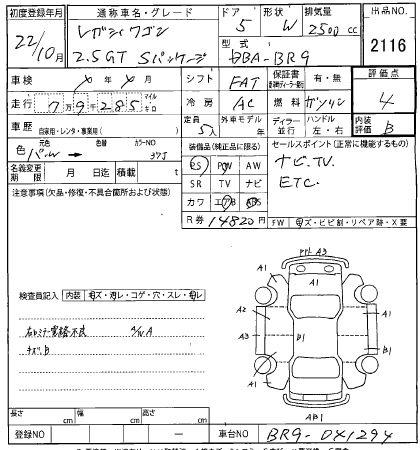 初度登録年月 通称車名・グレード ドア 形状 排気量 出品NO
22/10月 レガシィワゴン 5 W 2500cc
2.5GT Sパッケージ 型式 DBA-BR9 2116
車検 × 年 × 月 シフト FAT 保証書 有・無 評価点
走行 7万9千285 マイル キロ 冷房 AC 燃料 ガソリン 4
車歴 自家用・レンタ・事業用( ) 定員 5人 外車モデル 年 ディーラー 並行 ハンドル 左・右 内装評価 B
色 元色 色替 カラーNO 装備品(純正品に限る) セールスポイント(正常に機能するもの)
パW → 37J PS PW AW ナビ.TV.
名義変更期限 月 日迄 積載 t SR TV ナビ ETC.
注意事項(欠品・修復・不具合箇所および状態) カワ エアB ABS
R券 14820円 FW キズ・ヒビ割・リペア跡・X要
A3
A1 A1
検査員記入 内装 キズ・汚レ・コゲ・穴・スレ・
A2 A1
A3 B1 B1
キズ.B
A1 A1
AB1
長さ cm 幅 cm 高さ cm
登録NO — 車台NO BR9-041294